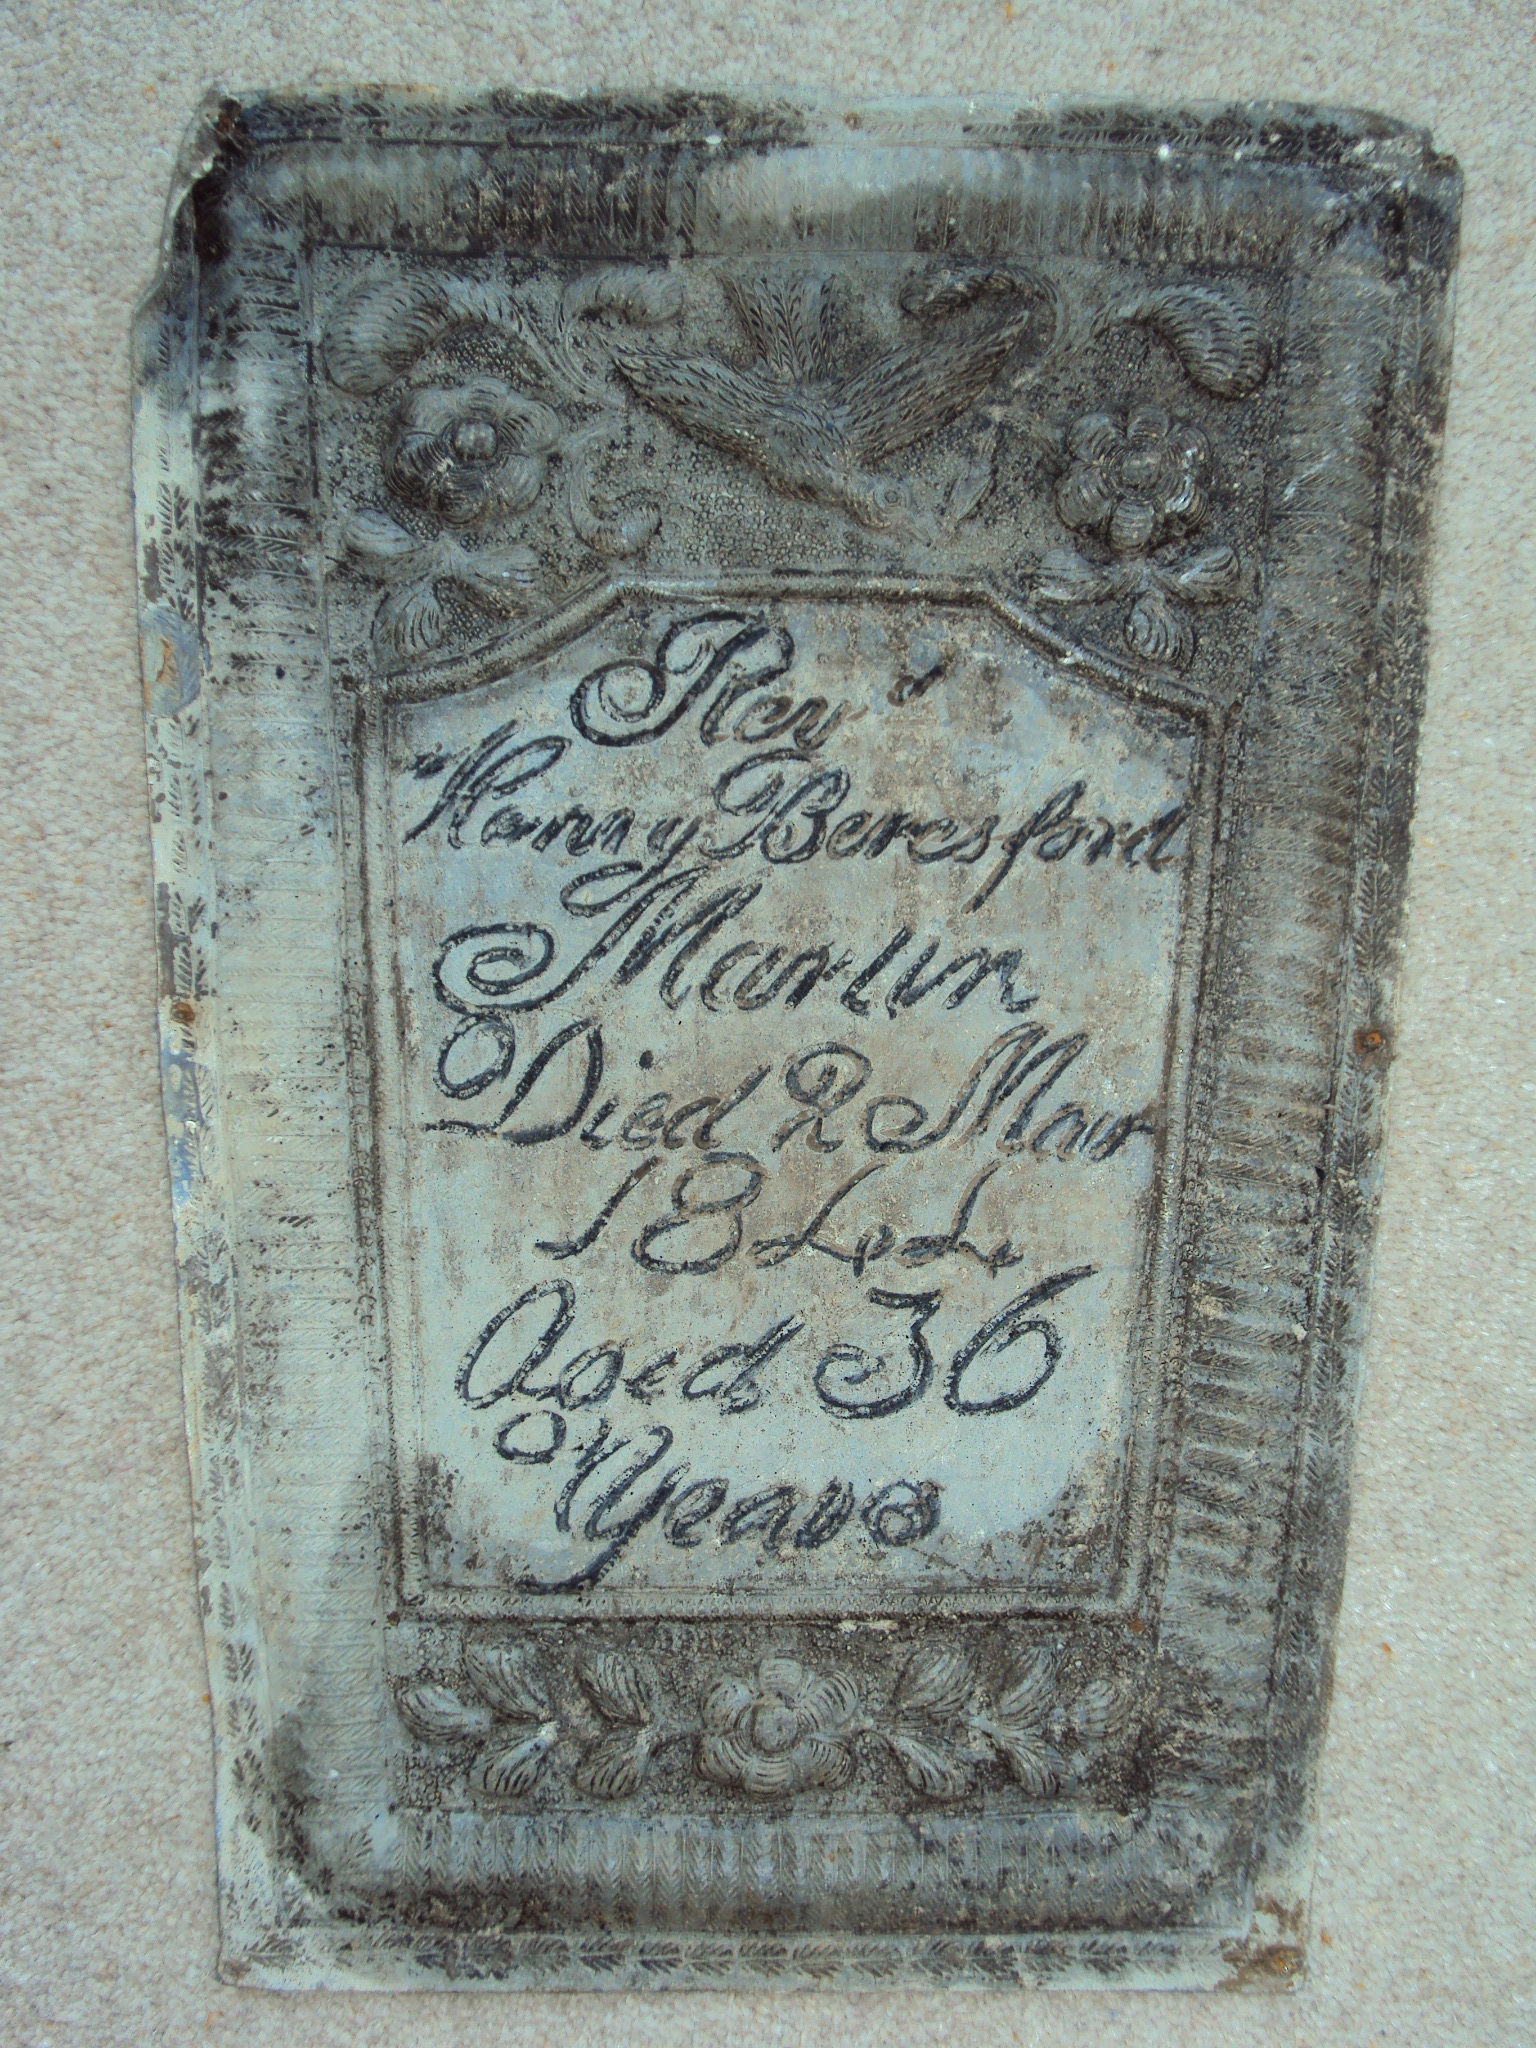 Revd
Henry Beresford
Martin
Died 2 Mar
1844
Aged 36
Years